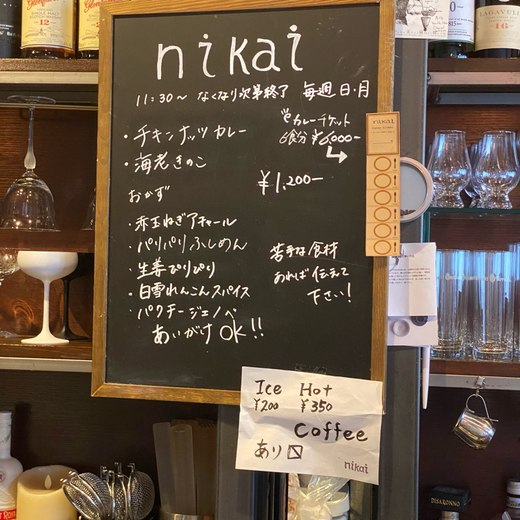 nikai
11:30〜 なくなり次第終了 毎週日・月
・チキンナッツカレー
・海老きのこ
カレーチケット
6食分 ¥6,000-
¥1,200-
おかず
・赤玉ねぎアチャール
・パリパリふしめん
・生姜ぴりぴり
・白雪れんこんスパイス
・パクチージェノベ
あいがけ OK!!
苦手な食材
あれば伝えて
下さい!
nikai
Ice Hot
¥200 ¥350
Coffee
あり
nikai
12
16
LAGAVULIN
DISARONNO